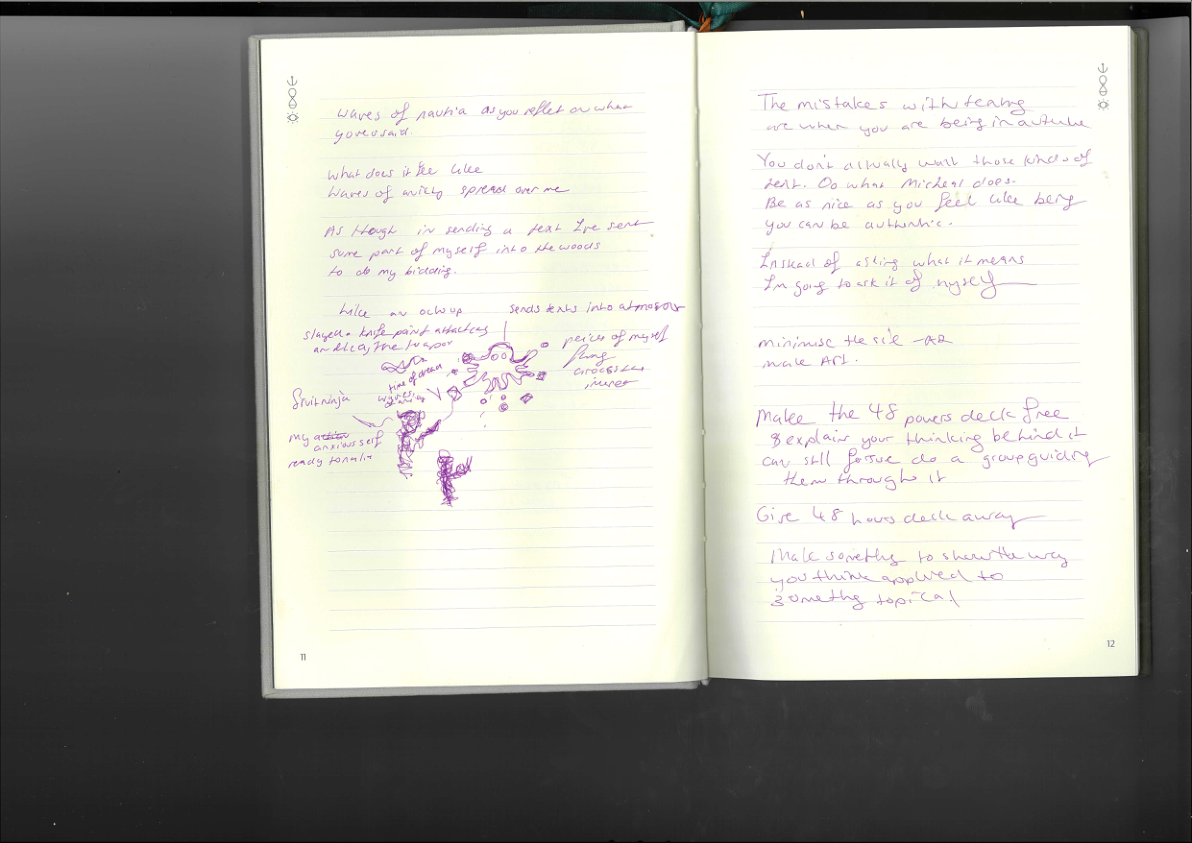 waves of nausia as you reflect on what
you've said.
What does it feel like
Waves of anxiety spread over me
As though in sending a text I've sent
some part of myself into the woods
to do my bidding.
like an octop
sends texts into atmosour
knife point attacking
peices of myself
flung
across the
time of dream
waves
fruit ninja
my
anxious self
ready to
11
The mistakes with
are when you are being inauthe
You don't actually want those kinds of
text. Do what Micheal does.
Be as nice as you feel like being
you can be authintic.
Instead of asking what it means
I'm going to ask it of myself
minimise the
male
Make the 48 powers deck free
& explain your thinking behind it
can still do a group guiding
them through it
Give 48 hours deck away
Make somethg to show the way
you think applied to
somethg topical
12